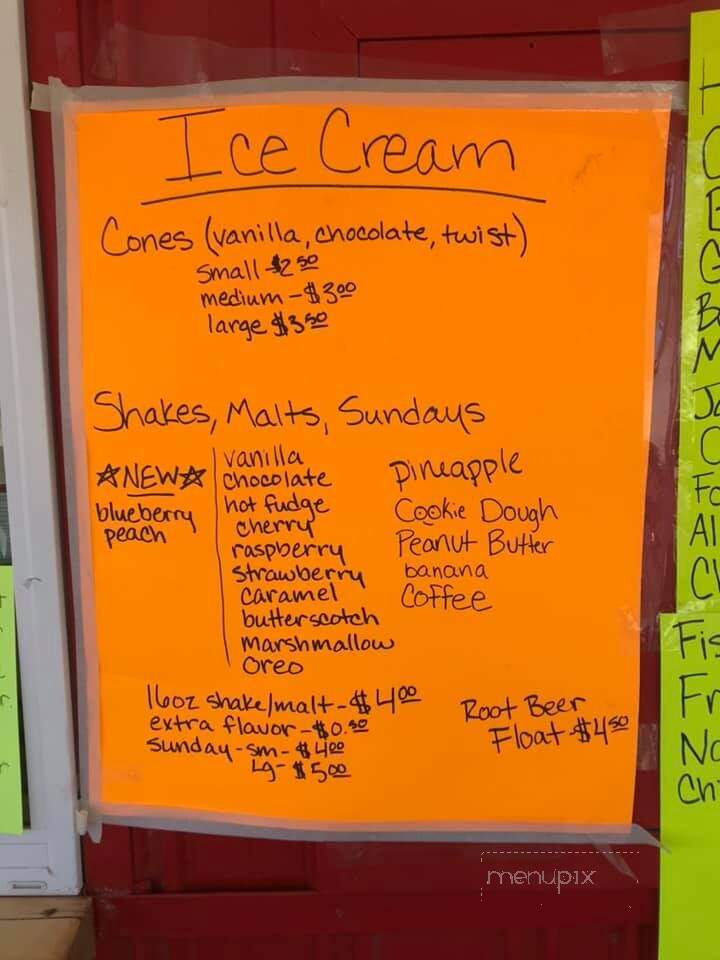 Ice Cream
Cones (vanilla, chocolate, twist)
small - $2.50
medium - $3.00
large $3.50
Shakes, Malts, Sundays
☆NEW☆
blueberry
peach
vanilla
chocolate
hot fudge
cherry
raspberry
strawberry
caramel
butterscotch
marshmallow
oreo
pineapple
Cookie Dough
Peanut Butter
banana
Coffee
16oz shake/malt - $4.00
extra flavor - $0.50
sunday - sm - $4.00
Lg - $5.00
Root Beer
Float - $4.50
menupix